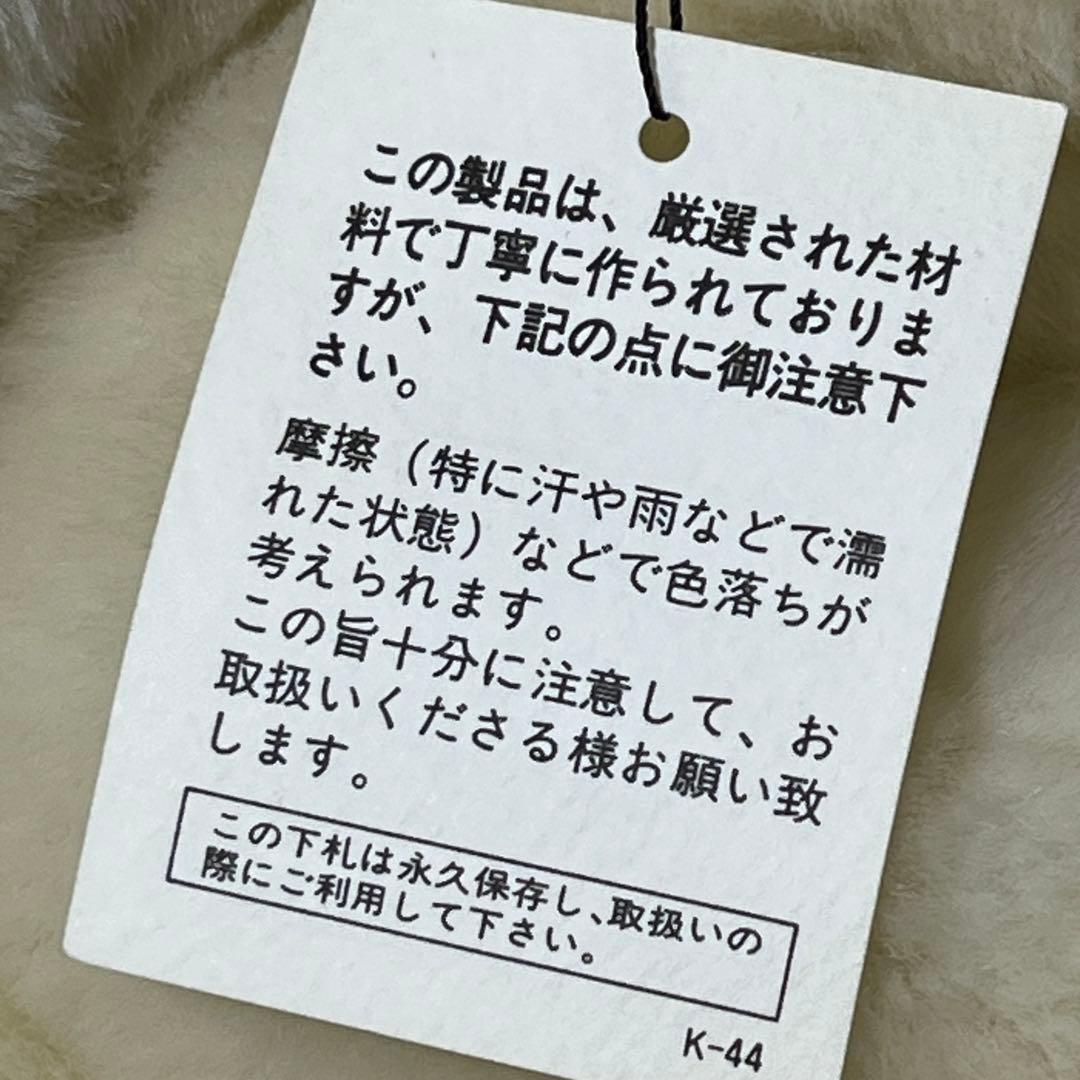 この製品は、厳選された材
料で丁寧に作られておりま
すが、下記の点に御注意下
さい。
摩擦（特に汗や雨などで濡
れた状態）などで色落ちが
考えられます。
この旨十分に注意して、お
取扱いくださる様お願い致
します。
この下札は永久保存し、取扱いの
際にご利用して下さい。
K-44